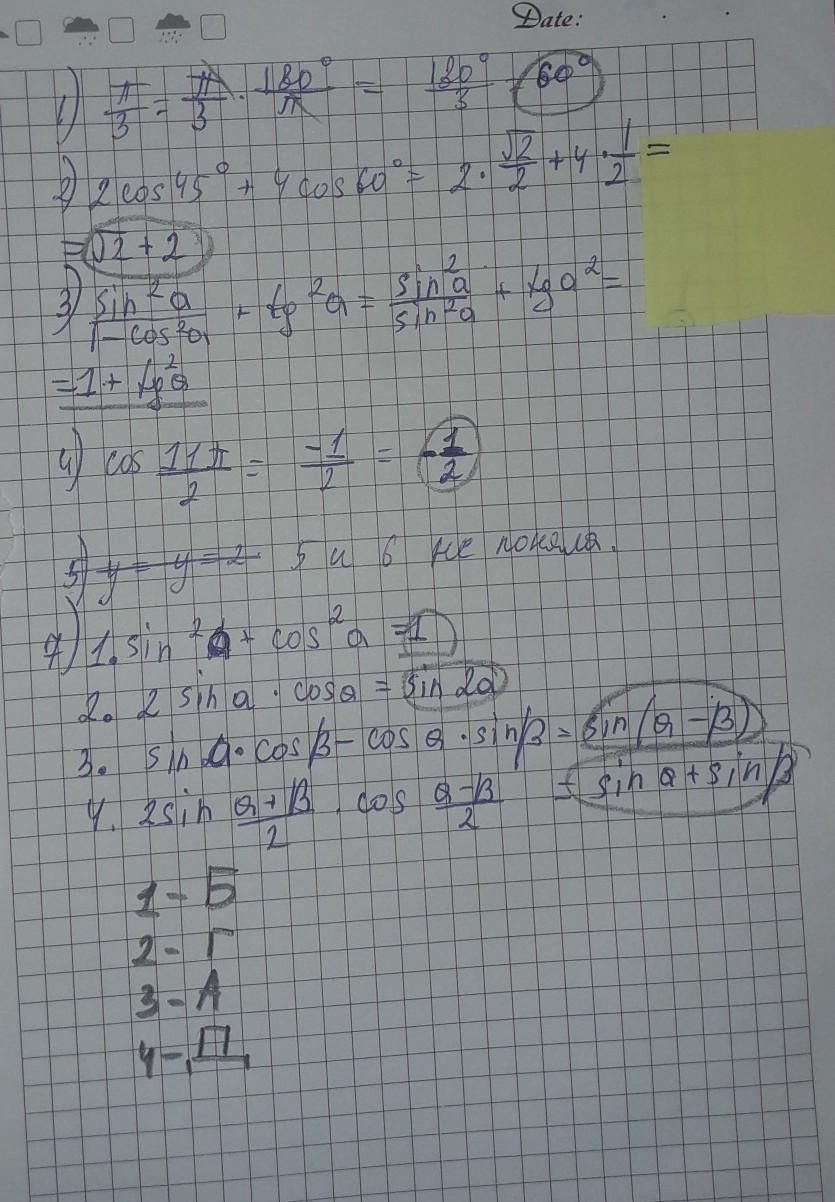 Date:
1) π/3 = π/3 · 180°/π = 180°/3 60°
2) 2cos45° + 4cos60° = 2 · √2/2 + 4 · 1/2 =
= √2 + 2
3) sin²a/1-cos²a + tg²a = sin²a/sin²a + tga² =
= 1 + tg²a
4) cos 11π/2 = -1/2 = -1/2
5) y = y = 2 5 и 6 не поняла.
7) 1. sin²a + cos²a = 1
2. 2 sin a · cosa = sin 2a
3. sin a · cosβ - cos a · sinβ = sin(a - β)
4. 2sin a+β/2 · cos a-β/2 = sin a + sin β
1 - Б
2 - Г
3 - А
4 - Д